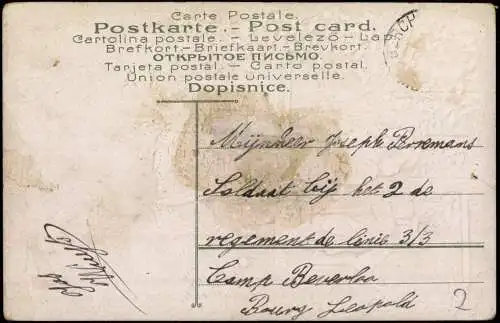 Carte Postale.
Postkarte. - Post card.
Cartolina postale. - Levelező-Lap.
Brefkort.-Briefkaart-Brevkort.
ОТКРЫТОЕ ПИСЬМО.
Tarjeta postal. - Carto postal.
Union postale universelle.
Dopisnice.
Mijnheer Joseph
Soldaat bij het 2 de
regement de linie 3/3
Camp Beverloo
Bourg Leopold
2